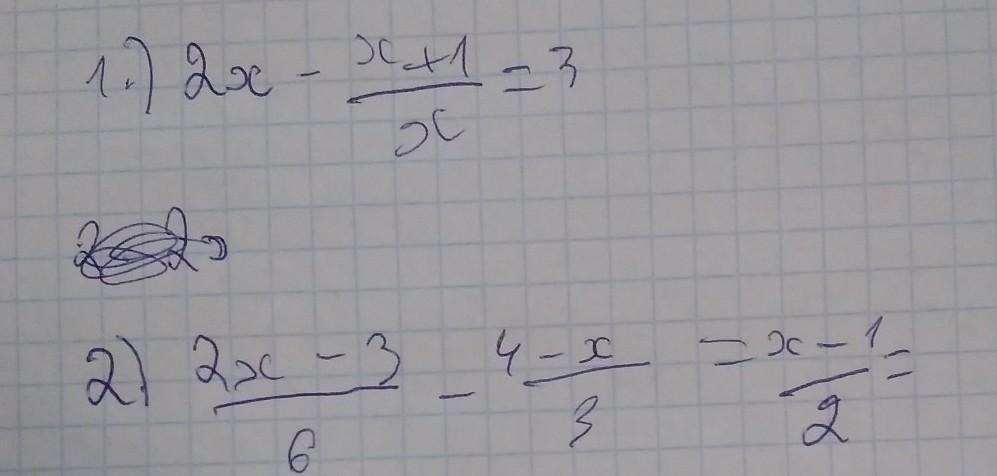 1.) 2x - (x+1)/x = 3
2) (2x - 3)/6 - (4 - x)/3 = (x - 1)/2 =